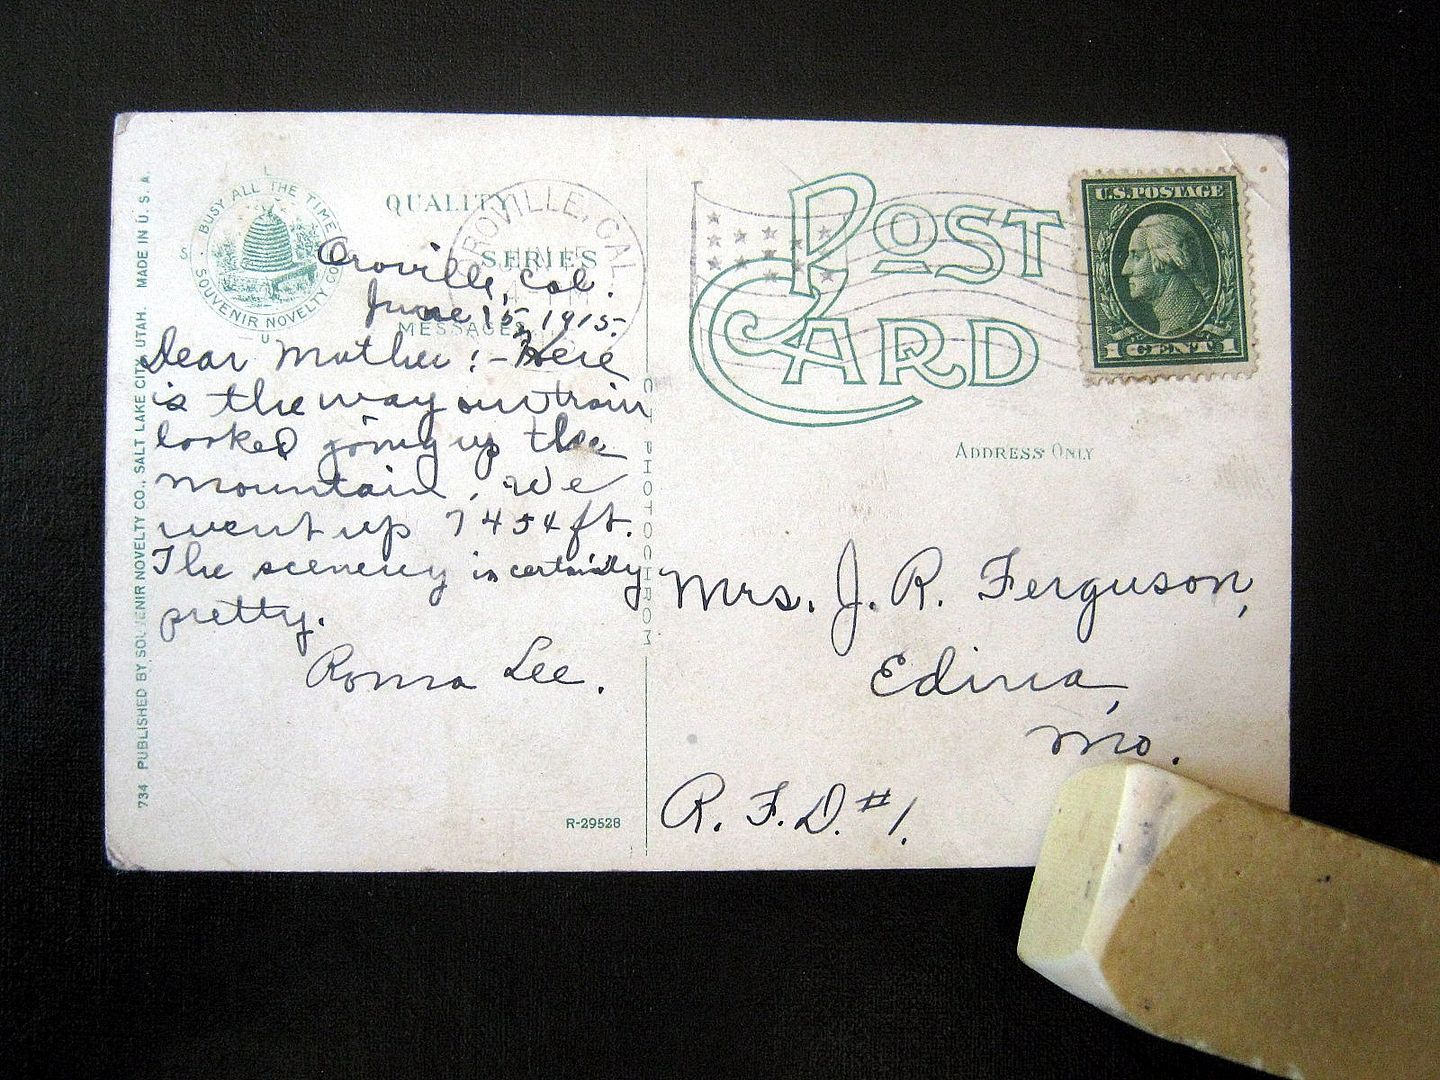 734 PUBLISHED BY SOUVENIR NOVELTY CO., SALT LAKE CITY, UTAH. MADE IN U. S. A.
BUSY ALL THE TIME
SOUVENIR NOVELTY CO.
S L C U
QUALITY
SERIES
MESSAGES
OROVILLE, CAL
Oroville, Cal.
June 15, 1915.
Dear Mother:- Here
is the way our train
looked going up the
mountain, We
went up 7454 ft.
The scenery is certainly
pretty.
Roma Lee.
R-29528
C T PHOTOCHROM
POST
CARD
U.S. POSTAGE
1 CENT 1
ADDRESS ONLY
Mrs. J. R. Ferguson,
Edina,
Mo.
R. F. D. #1.